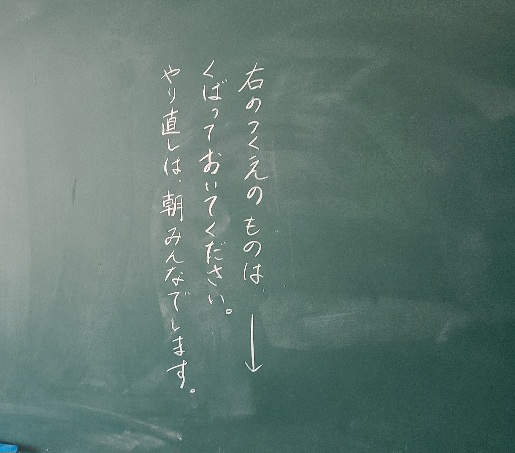 右のつくえのものは ↓
くばっておいてください。
やり直しは、朝みんなでします。